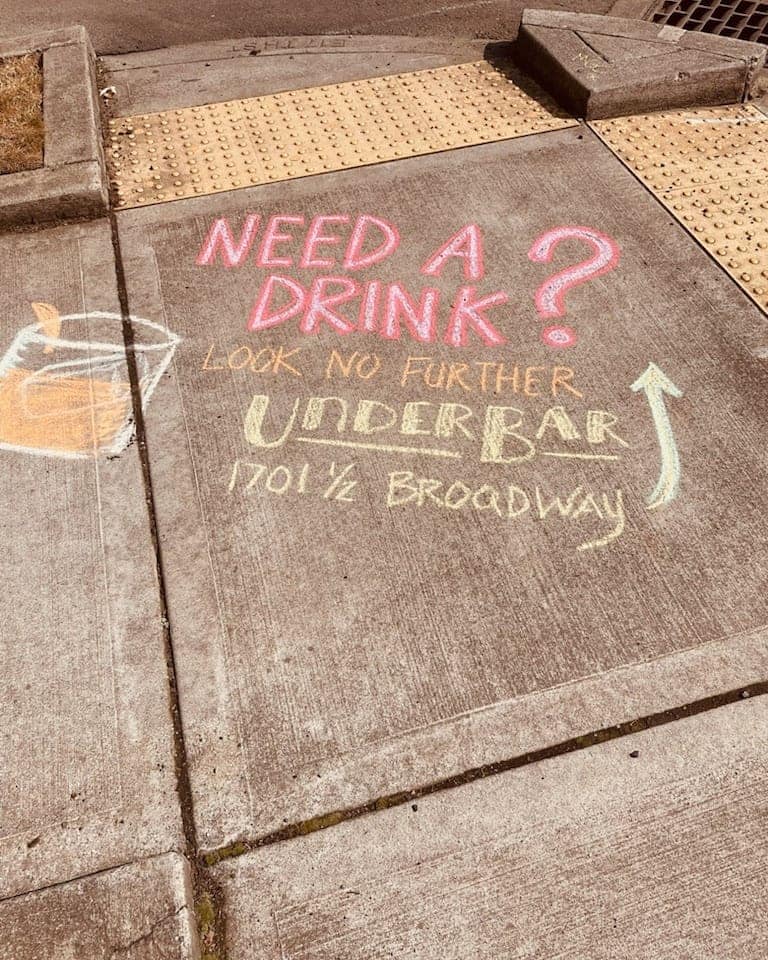 NEED A ?
DRINK
LOOK NO FURTHER
UNDERBAR
1701 ½ BROADWAY